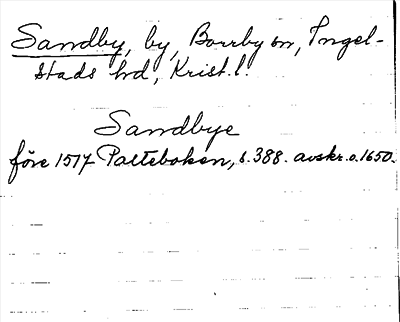 Sandby, by, Borrby sn, Ingel-
stads hd, Krist. l.
Sandbye
före 1517 Palteboken, s. 388. avskr. o. 1650.